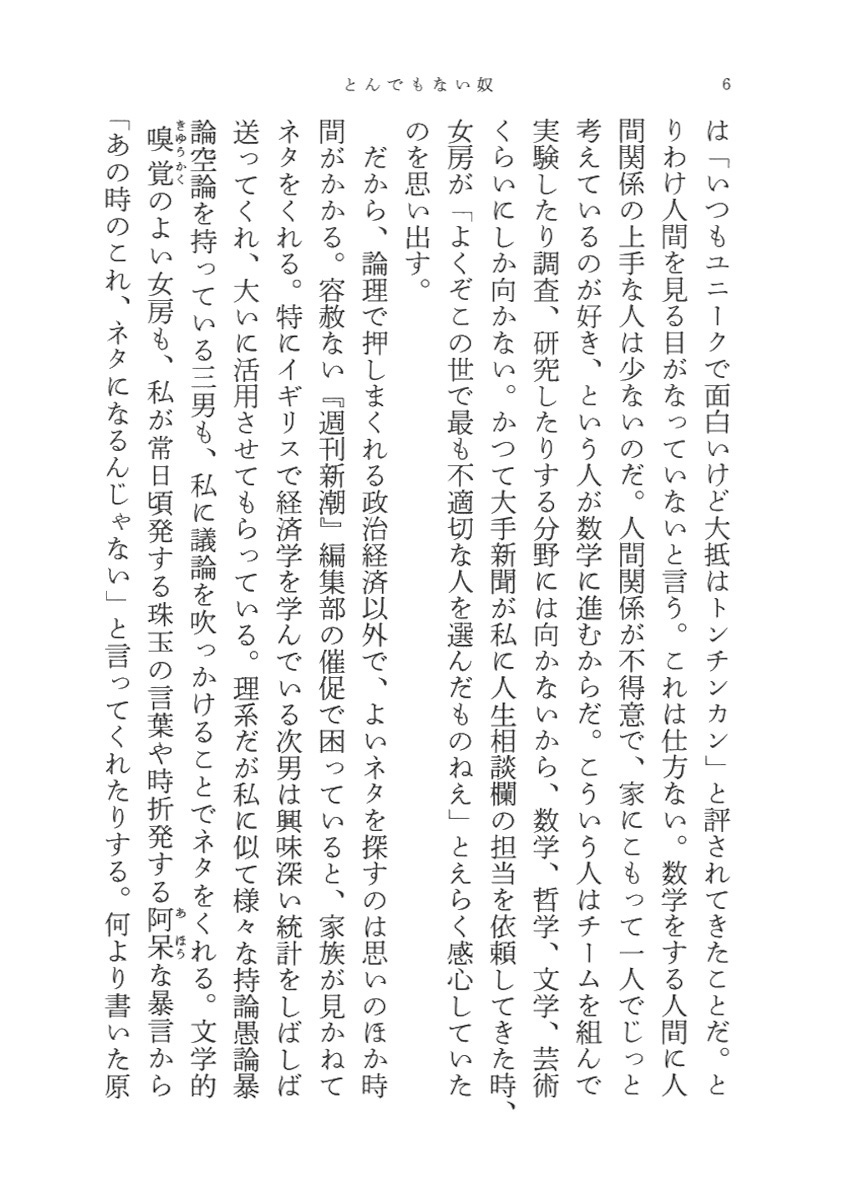 とんでもない奴
6
は「いつもユニークで面白いけど大抵はトンチンカン」と評されてきたことだ。と
りわけ人間を見る目がなっていないと言う。これは仕方ない。数学をする人間に人
間関係の上手な人は少ないのだ。人間関係が不得意で、家にこもって一人でじっと
考えているのが好き、という人が数学に進むからだ。こういう人はチームを組んで
実験したり調査、研究したりする分野には向かないから、数学、哲学、文学、芸術
くらいにしか向かない。かつて大手新聞が私に人生相談欄の担当を依頼してきた時、
女房が「よくぞこの世で最も不適切な人を選んだものねえ」とえらく感心していた
のを思い出す。
だから、論理で押しまくれる政治経済以外で、よいネタを探すのは思いのほか時
間がかかる。容赦ない『週刊新潮』編集部の催促で困っていると、家族が見かねて
ネタをくれる。特にイギリスで経済学を学んでいる次男は興味深い統計をしばしば
送ってくれ、大いに活用させてもらっている。理系だが私に似て様々な持論愚論暴
論空論を持っている三男も、私に議論を吹っかけることでネタをくれる。文学的
嗅覚のよい女房も、私が常日頃発する珠玉の言葉や時折発する阿呆な暴言から
きゆうかく
あほう
「あの時のこれ、ネタになるんじゃない」と言ってくれたりする。何より書いた原